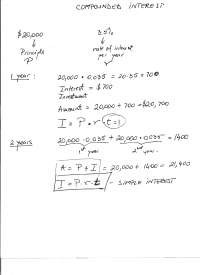 COMPOUNDED INTEREST
$20,000
3.5%
Principle
P
rate of interest
per year
r
1 year:
20,000 × 0.035 = 700
Interest = $700
Investment
Amount = 20,000 + 700 = $20,700
I = P • r (t=1)
2 years
20,000 • 0.035 + 20,000 • 0.035 = 1400
1st year
2nd year
A = P + I = 20,000 + 1400 = 21,400
I = P • r • t - SIMPLE INTEREST